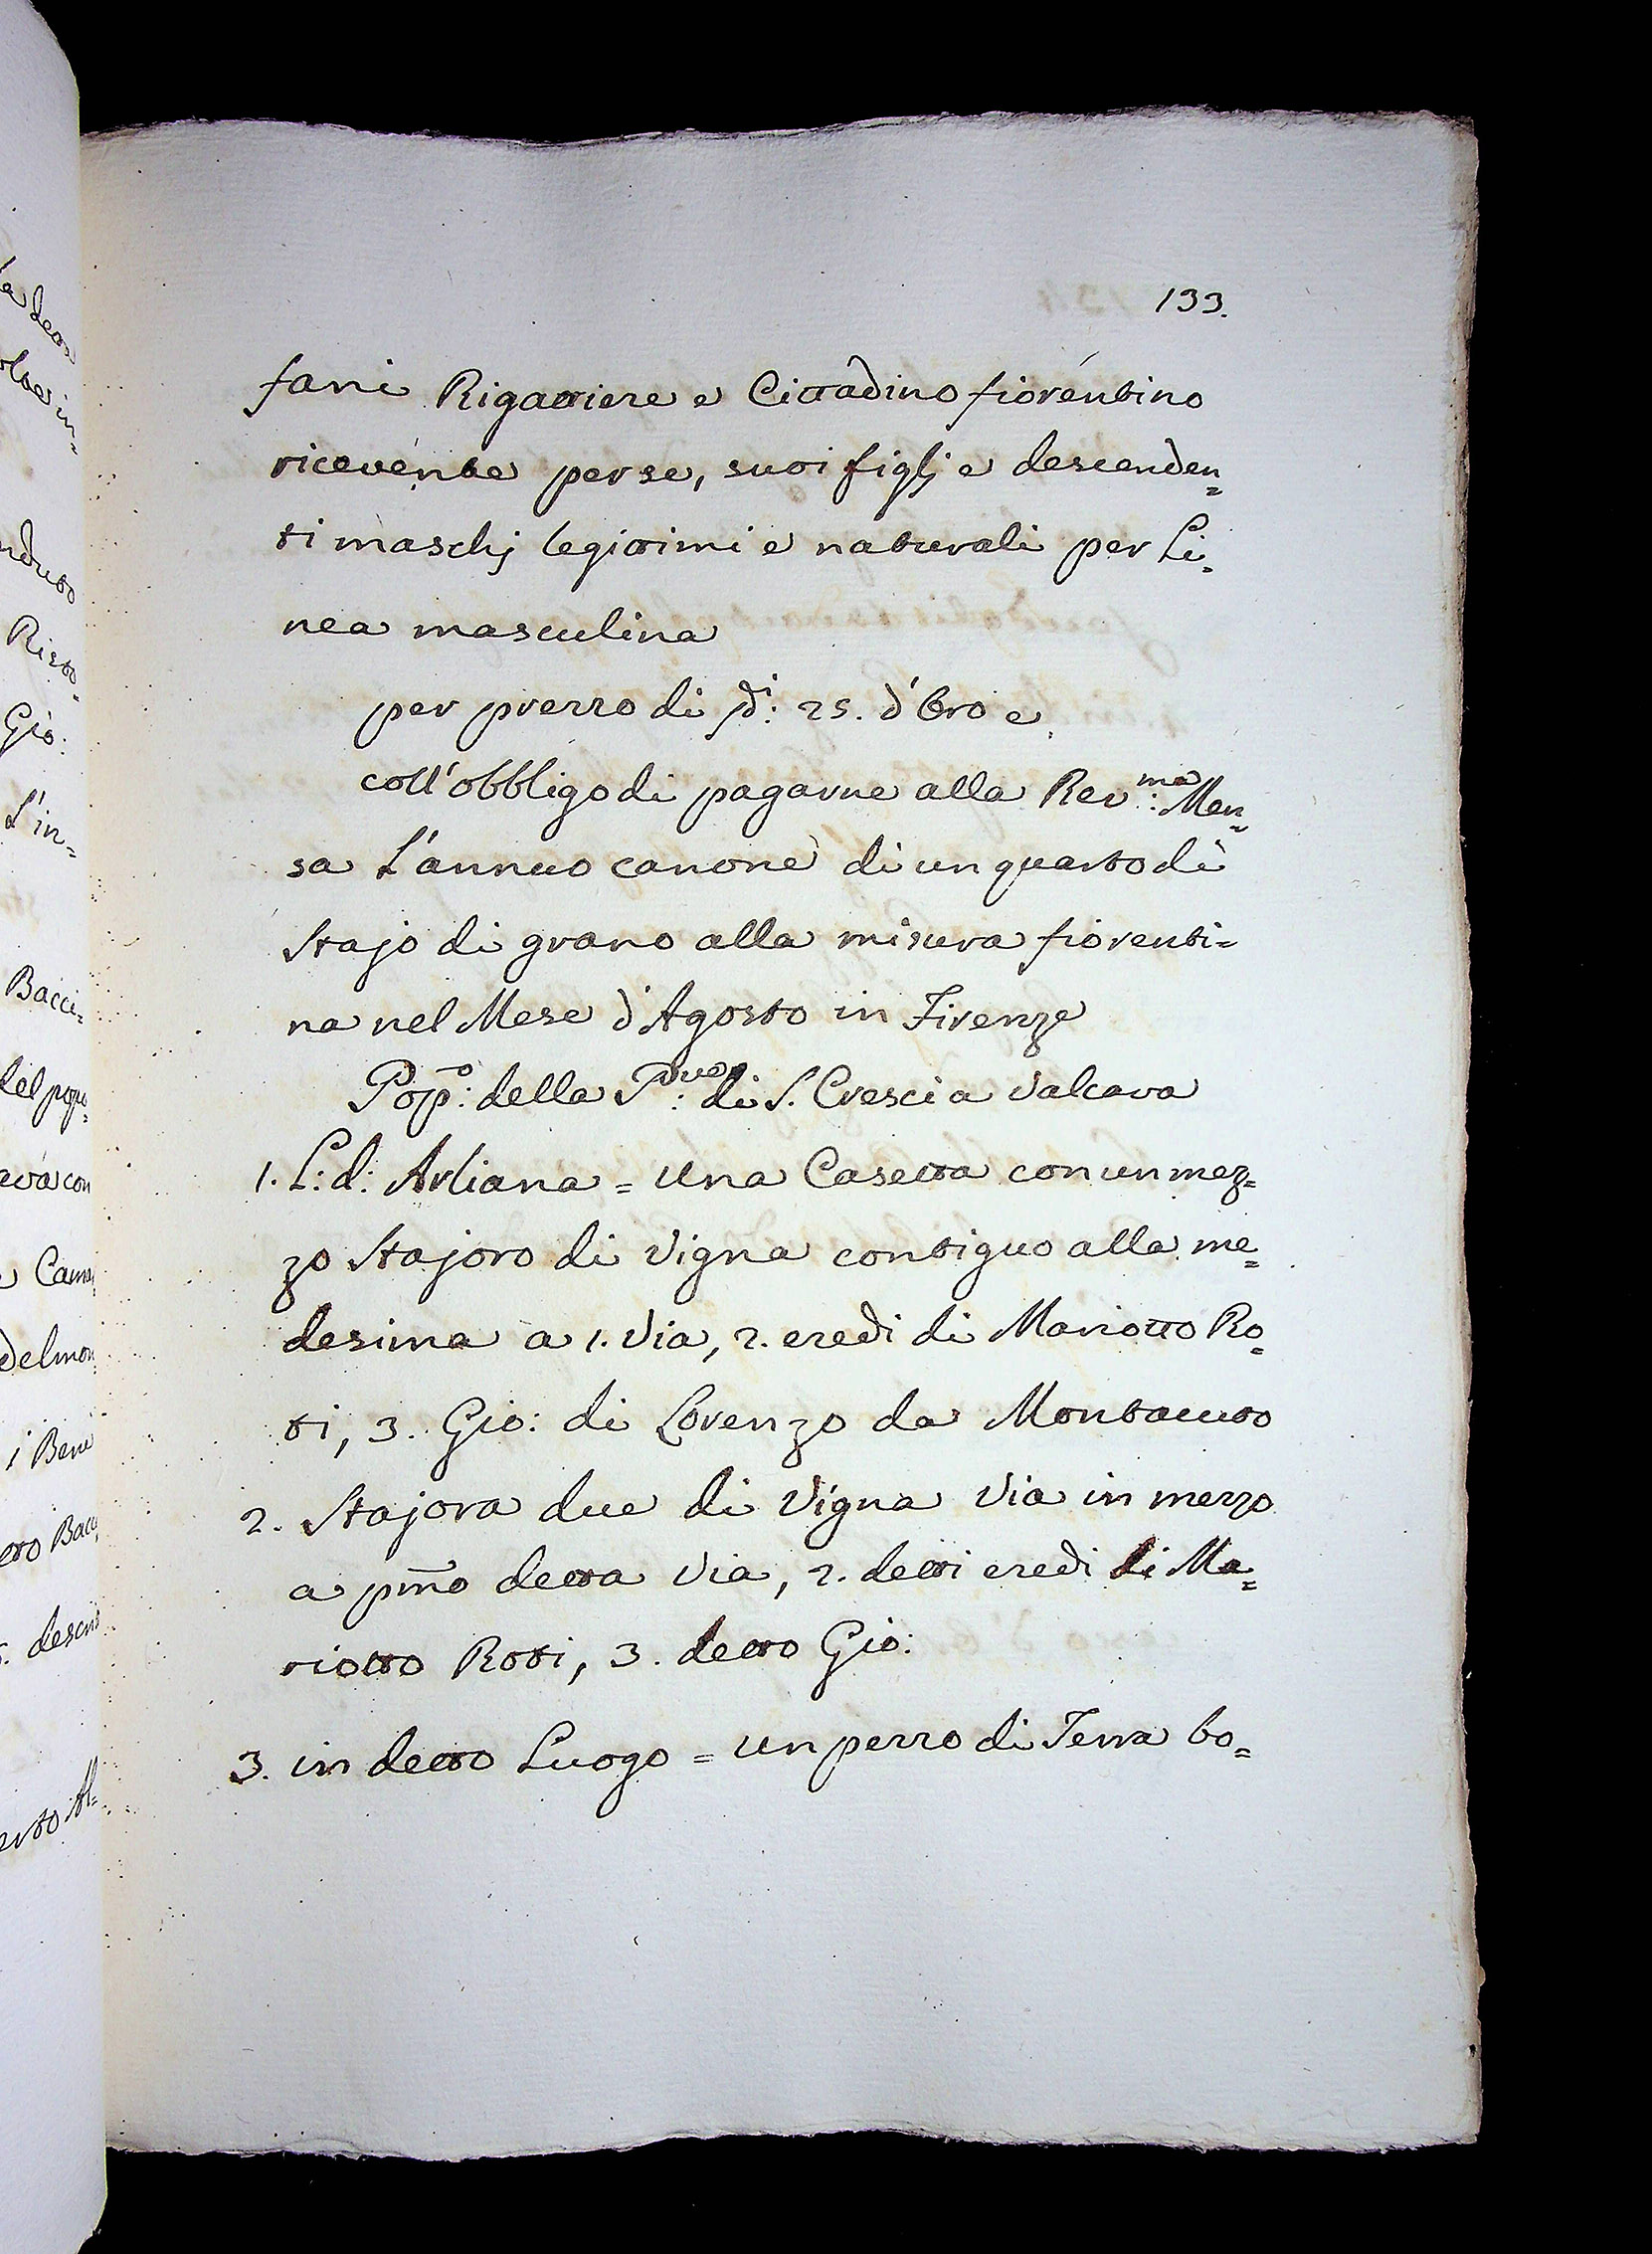 133.
fani Rigattiere e Cittadino fiorentino
ricevente per se, suoi figlj e descenden=
ti maschj legittimi e naturali per Li=
nea masculina
per prezzo di 25. d'Oro e
coll'obbligo di pagarne alla Rev.ma Men=
sa L'annuo canone di un quarto di
Stajo di grano alla misura fiorenti=
na nel Mese d'Agosto in Firenze
Pop.o: della P.ve: di S. Cresci a Valcava
1. L: d: Arliana = una Casetta con un mez=
zo Stajoro di Vigna contiguo alla me=
desima a 1. Via, 2. eredi di Mariotto Ro=
ti, 3. Gio: di Lorenzo da Montacuto
2. Stajora due di Vigna Via in mezzo
a pmo detta Via, 2. detti eredi di Ma=
riotto Roti, 3. detto Gio:
3. in detto Luogo = un pezzo di Terra bo=